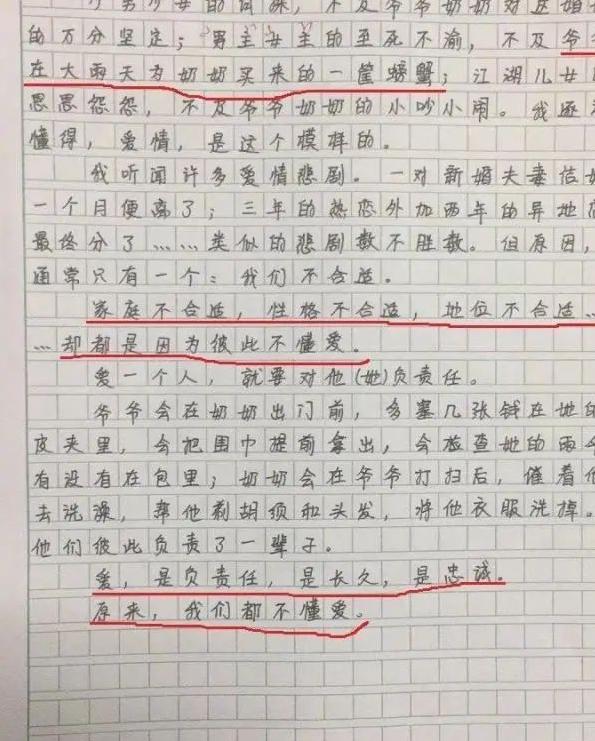 少男少女的 ，不及爷爷奶奶对这婚
的万分坚定；男主女主的至死不渝，不及爷
在大雨天为奶奶买来的一筐螃蟹；江湖儿女
恩恩怨怨，不及爷爷奶奶的小吵小闹。我逐
懂得，爱情，是这个模样的。
我听闻许多爱情悲剧。一对新婚夫妻结
一个月便离了；三年的热恋外加两年的异地
最终分了……类似的悲剧数不胜数。但原因，
通常只有一个：我们不合适。
家庭不合适，性格不合适，地位不合适…
…却都是因为彼此不懂爱。
爱一个人，就要对他(她)负责任。
爷爷会在奶奶出门前，多塞几张钱在她的
皮夹里，会把围巾提前拿出，会检查她的雨
有没有在包里；奶奶会在爷爷打扫后，催着
去洗澡，帮他剃胡须和头发，将他衣服洗掉。
他们彼此负责了一辈子。
爱，是负责任，是长久，是忠诚。
原来，我们都不懂爱。